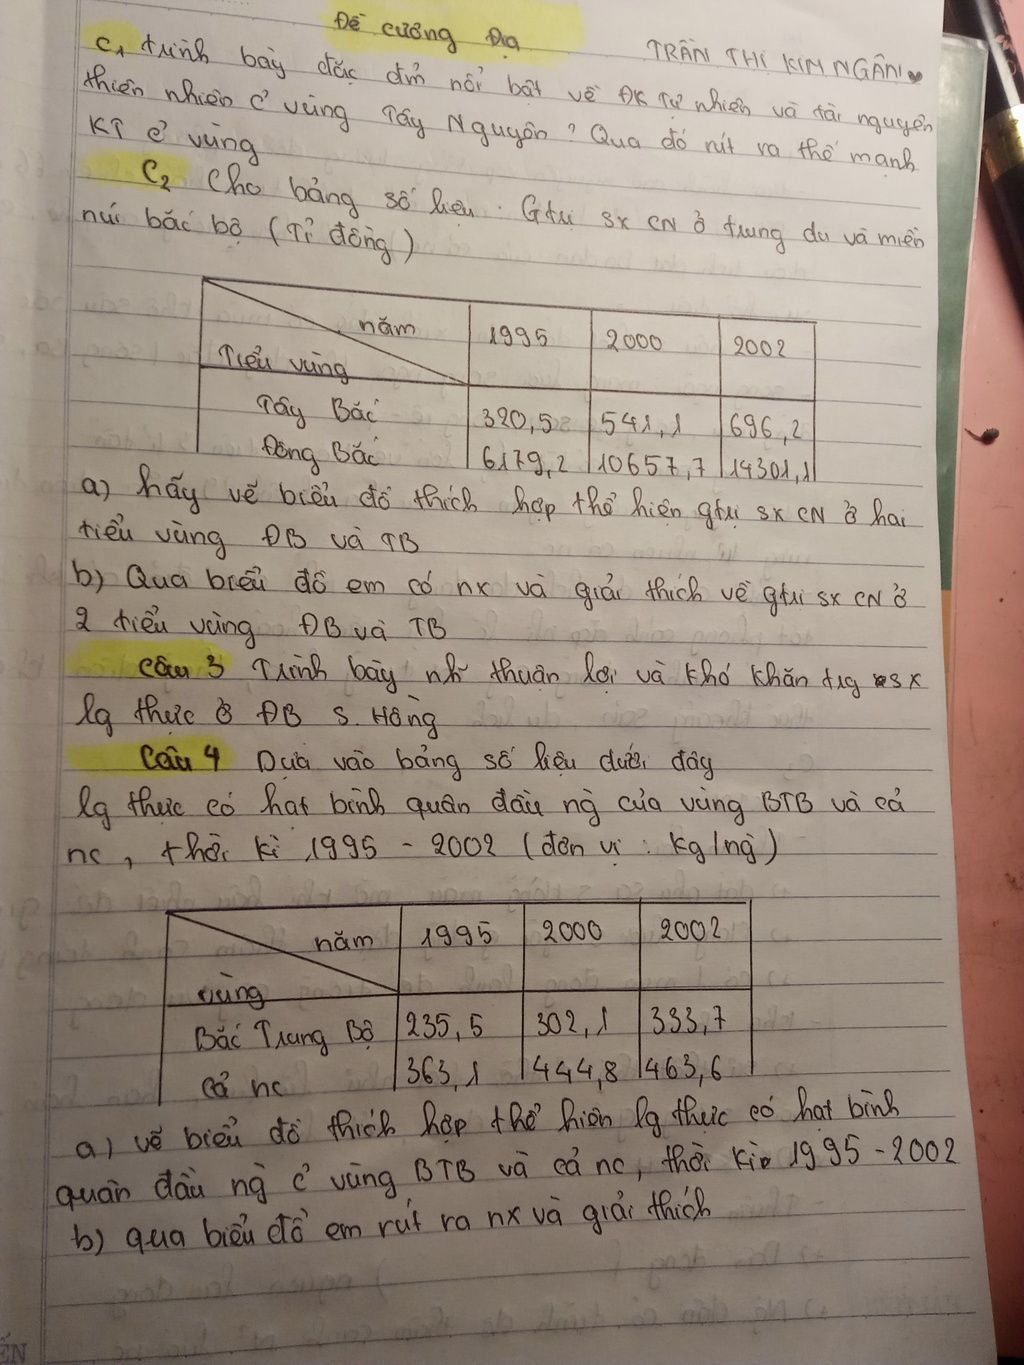 Đề cương Địa
TRẦN THỊ KIM NGÂN
C1 trình bày đặc đm nổi bật về ĐK Tự nhiên và tài nguyên
thiên nhiên c̉ vùng Tây Nguyên? Qua đó rút ra thế mạnh
KT c̉ vùng
C2 Cho bảng số liệu. Gtrị sx CN ở trung du và miền
núi bắc bộ (Tỉ đồng)
năm 1995 2000 2002
Tiểu vùng
Tây Bắc 320,5 541,1 696,2
Đông Bắc 6179,2 10657,7 14301,1
a) hãy vẽ biểu đồ thích hợp thể hiện gtrị sx CN ở hai
tiểu vùng ĐB và TB
b) Qua biểu đồ em có nx và giải thích về gtrị sx CN ở
2 tiểu vùng ĐB và TB
Câu 3 Trình bày nh~ thuận lợi và khó khăn trg sx
lg thực ở ĐB S. Hồng
Câu 4 Dựa vào bảng số liệu dưới đây
lg thực có hạt bình quân đầu ng̀ của vùng BTB và cả
nc, thời kì 1995 - 2002 (đơn vị: kg/ng̀)
năm 1995 2000 2002
vùng
Bắc Trung Bộ 235,5 302,1 333,7
Cả nc 363,1 444,8 463,6
a) vẽ biểu đồ thích hợp thể hiện lg thực có hạt bình
quân đầu ng̀ c̉ vùng BTB và cả nc, thời kì 1995 - 2002
b) qua biểu đồ em rút ra nx và giải thích